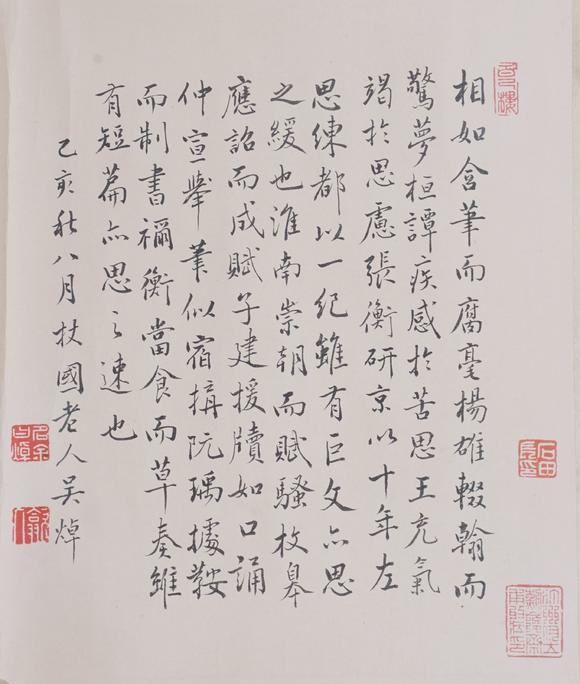 相如含筆而腐毫楊雄輟翰而
驚夢桓譚疾感於苦思王充氣
竭於思慮張衡研京以十年左
思練都以一紀雖有巨文亦思
之緩也淮南崇朝而賦騷枚皋
應詔而成賦子建援牘如口誦
仲宣舉筆似宿搆阮瑀據鞍
而制書禰衡當食而草奏雖
有短篇亦思之速也
乙亥秋八月杖國老人吳焯